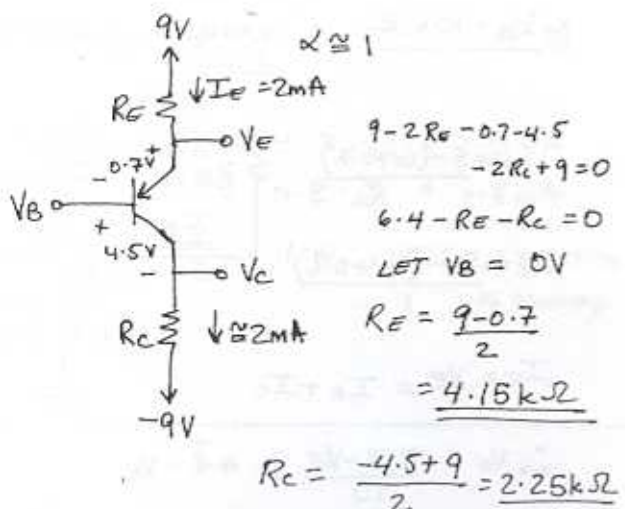 9V
α ≅ 1
↓ I_E = 2mA
R_E
V_E
0.7V +
-
V_B
+
4.5V
-
V_C
R_C
↓ ≅ 2mA
-9V
9-2R_E-0.7-4.5
-2R_C+9=0
6.4-R_E-R_C=0
LET V_B = 0V
R_E = 9-0.7
2
= 4.15kΩ
R_C = -4.5+9 = 2.25kΩ
2